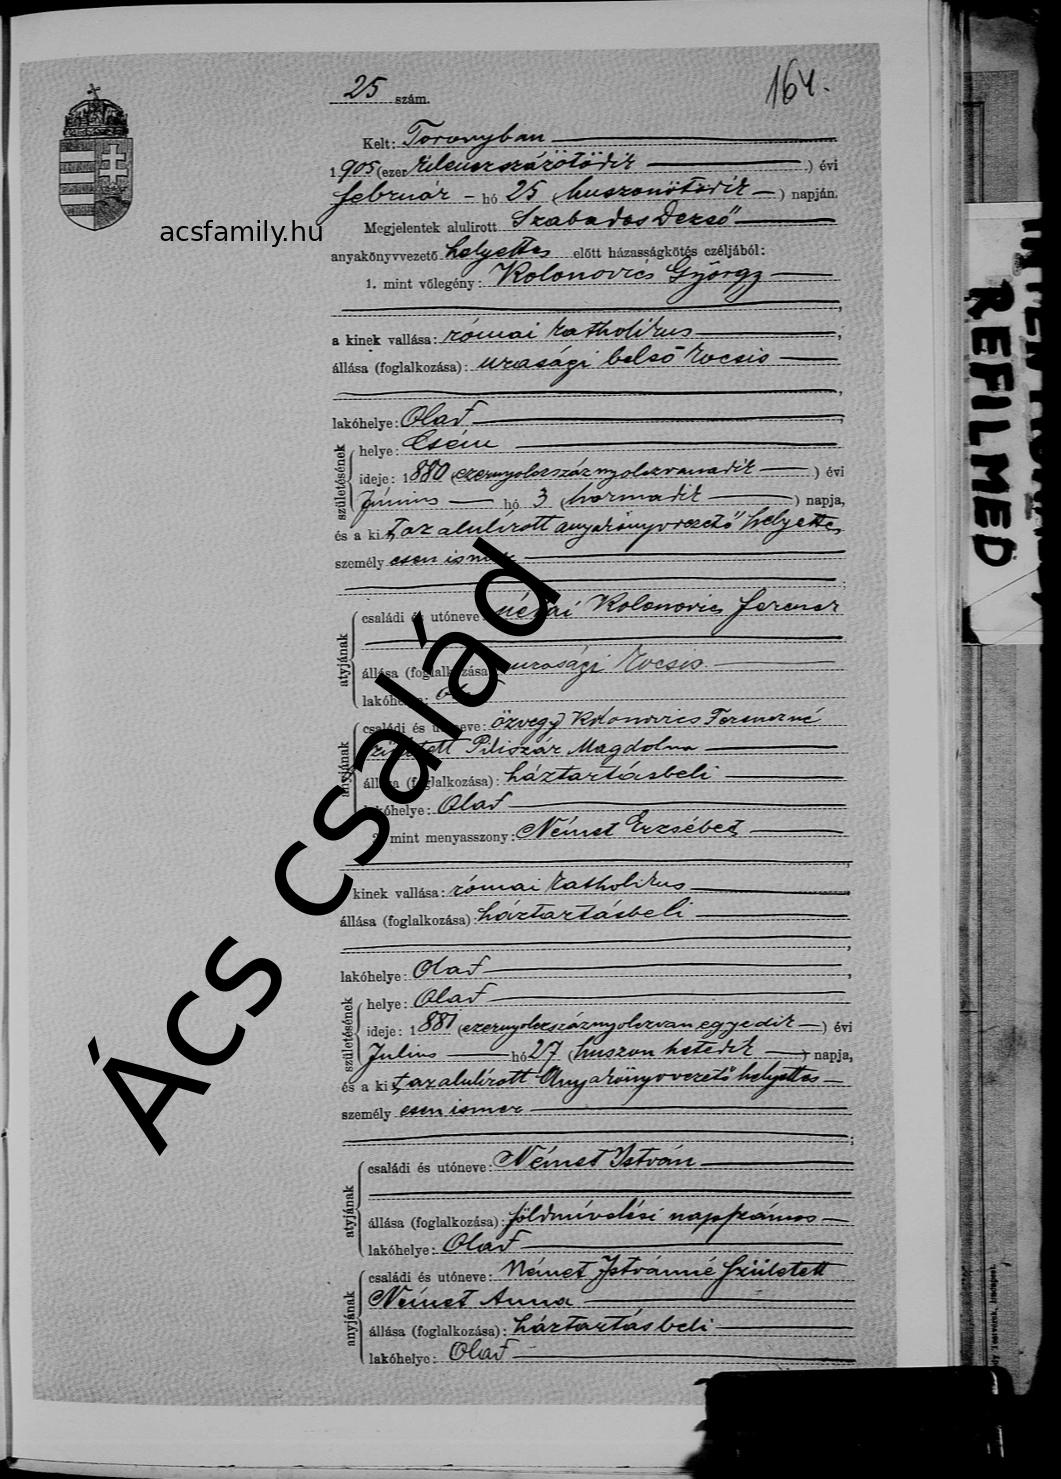 25 szám.
164.
Kelt: Toronyban
1905 (ezer kilenczszázötödik) évi
február hó 25 (huszonötödik) napján.
acsfamily.hu
Megjelentek alulirott Szabados Dezső
anyakönyvvezető helyettes előtt házasságkötés czéljából:
1. mint vőlegény: Kolonovics György
a kinek vallása: római katholikus
állása (foglalkozása): urasági belső kocsis
lakóhelye: Olad
születésének
helye: Csém
ideje: 1880 (ezernyolcszáznyolczvanadik) évi
Június hó 3 (harmadik) napja,
és a kit az alulírott anyakönyvvezető helyettes
személyesen ismer
Ács család
atyjának
családi és utóneve: néhai Kolonovics Ferencz
állása (foglalkozása): urasági kocsis
lakóhelye:
anyjának
családi és utóneve: özvegy Kolonovics Ferenczné
született Piliszár Magdolna
állása (foglalkozása): háztartásbeli
lakóhelye: Olad
2. mint menyasszony: Német Erzsébet
kinek vallása: római katholikus
állása (foglalkozása): háztartásbeli
lakóhelye: Olad
születésének
helye: Olad
ideje: 1881 (ezernyolczszáznyolczvanegyedik) évi
Julius hó 27 (huszonhetedik) napja,
és a kit az alulírott Anyakönyvvezető helyettes
személyesen ismer
atyjának
családi és utóneve: Német István
állása (foglalkozása): földmívelési napszámos
lakóhelye: Olad
anyjának
családi és utóneve: Német Istvánné született
Német Anna
állása (foglalkozása): háztartásbeli
lakóhelye: Olad
REFILMED